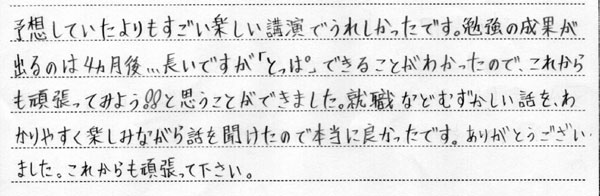 予想していたよりもすごい楽しい講演でうれしかったです。勉強の成果が
出るのは4ヵ月後…長いですが「とっぱ。」できることがわかったので、これから
も頑張ってみよう!!と思うことができました。就職などむずかしい話を、わ
かりやすく楽しみながら話を聞けたので本当に良かったです。ありがとうござい
ました。これからも頑張って下さい。